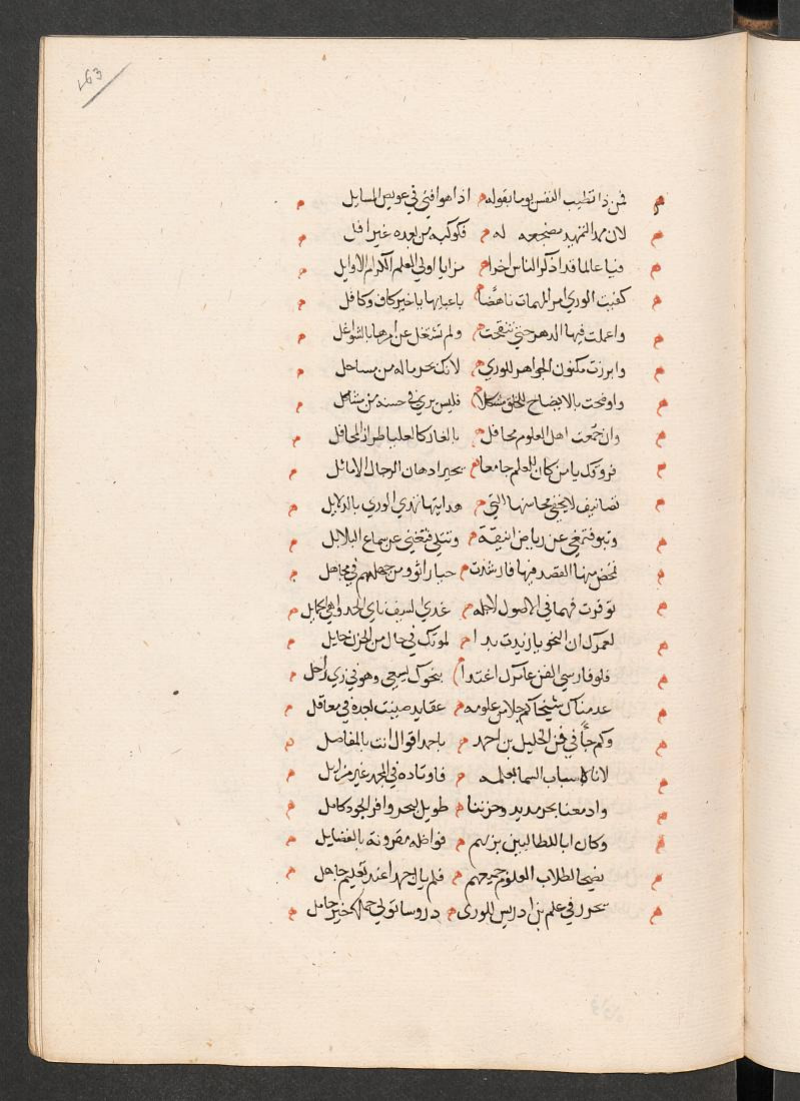 163
فمن ذا تطيب النفس يوما بقوله م اذا هو افتى في عويص المسايل م
لان مهد التمهيد مضجعه له م فكوكبه من بعده غير افل م
فيا عالما قد اذكر الناس اخرا م مزايا اولي العلم الكرام الاوايل م
كفيت الوري امر المهمات ناهضا م باعبايها يا خير كاف وكافل م
واعملت فيها الدهر حتى تنقحت م ولم تشتغل عن امرها بالشواغل م
وابرزت مكنون الجواهر للوري م لانك بحر ماله من مساحل م
واوضحت بالايضاح للخلق مشكلا م فليس يري في حسنه من مشاكل م
وان جمعت اهل العلوم محافل م بالغازك العليا طراز المحافل م
فروقك يا من كان للعلم جامعا م تحير اذهان الرجال الاماثل م
تصانيف لا يخفي محاسنها التي م هدايتها تهدي الوري بالدلايل م
وتبدو فتغني عن رياض انيقة م وتتلي فتغني عن سماع البلابل م
تمخض منها القصد فيها فارشدت م حياري ثووا من جهلهم في مجاهل م
توفرت فهما في الاصول لاجله م غدي السيف ناي الحد واهي الحمايل م
لعمرك ان النحو يا زيد قد بدا م لموتك في حال من الحزن حايل م
فلو فارسي الفن عاينك اغتدوا م بنحوك يسعي وهو في زي راجل م
عدمناك شيخا كم جلا من علومه م عقايد صينت بعده في معاقل م
وكم جآ في فن الخليل بن احمد م باحمد اقوال انت بالمفاصل م
لانا كاسباب السما بعلمه م فاوتاده في المجد غير مزايل م
وادمعنا بحر مديد وحزننا م طويل لبحر وافر الجود كامل م
وكان ابا للطالبين بزهم م فواظله مقرونة بالفضايل م
نصيحا لطلاب العلوم جميعهم م فلم يال جهدا عند تعليم جاهل م
تحرر في علم بن ادريس للوري م دروسا تولي حملها خير حامل م